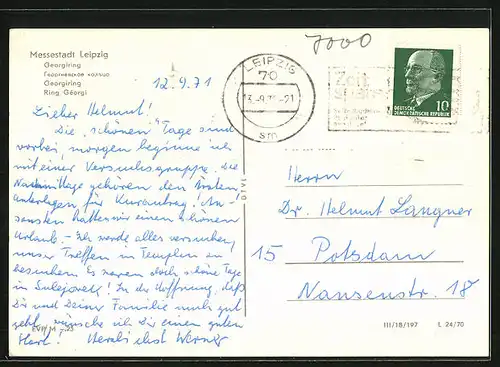 Messestadt Leipzig
Georgiring
Георгиевское кольцо
Georgiring
Ring Géorgi
7000
12.9.71
LEIPZIG
70
13.-9.71-21
sm
DEUTSCHE
DEMOKRATISCHE REPUBLIK
10
Lieber Helmut!
Die „schönen" Tage sind
vorbei, morgen beginne ich
mit einer Versuchsgruppe. Die
Nachmittage gehören den
für Kurantrag!
hatten wir einen schönen
Urlaub. – Ich werde alles versuchen,
unser Treffen in Templin zu
besuchen. Es waren doch schöne Tage
in In der Hoffnung, daß
Dir und Deiner Familie noch gut
geht, wünsche ich Dir einen guten
Herbst! Herzlichst Werner
Herrn
Dr. Helmut Langner
15 Potsdam
Nansenstr. 18
III/18/197 L 24/70